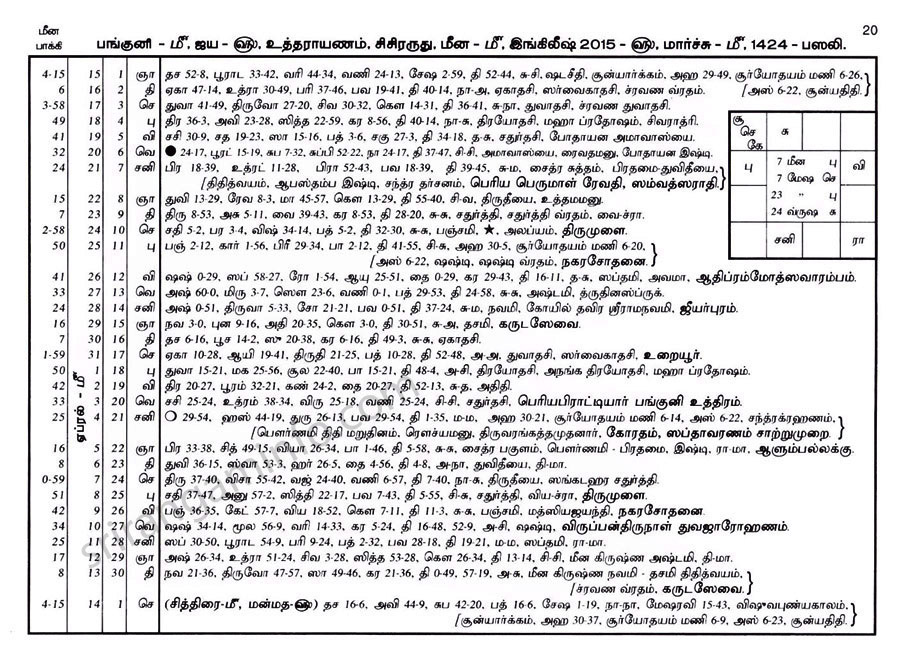 20
மீன
பாக்கி
பங்குனி - மீ, ஜய - ௵, உத்தராயணம், சிசிரருது, மீன - மீ, இங்கிலீஷ் 2015 - ௵, மார்ச்சு - மீ, 1424 - பஸலி.
4-15 15 1 ஞா தச 52-8, பூராட 33-42, வரி 44-34, வணி 24-13, சேஷ 2-59, தி 52-44, சு-சி, ஷடசீதி, சூன்யார்க்கம், அஹ 29-49, சூர்யோதயம் மணி 6-26,
6 16 2 தி ஏகா 47-14, உத்ரா 30-49, பரி 37-46, பவ 19-41, தி 40-14, நா-அ, ஏகாதசி, ஸர்வைகாதசி, ச்ரவண வ்ரதம். [அஸ் 6-22, சூன்யதிதி.]
3-58 17 3 செ துவா 41-49, திருவோ 27-20, சிவ 30-32, கௌ 14-31, தி 36-41, சு-நா, துவாதசி, ச்ரவண துவாதசி.
49 18 4 பு திர 36-3, அவி 23-28, ஸித்த 22-59, கர 8-56, தி 40-14, நா-சு, திரயோதசி, மஹா ப்ரதோஷம், சிவராத்ரி.
41 19 5 வி சசி 30-9, சத 19-23, ஸா 15-16, பத் 3-6, சகு 27-3, தி 34-18, த-சு, சதுர்தசி, போதாயன அமாவாஸ்யை.
32 20 6 வெ ● 24-17, பூரட் 15-19, சுப 7-32, சுப்பி 52-22, நா 24-17, தி 37-47, சி-சி, அமாவாஸ்யை, ரைவதமனு, போதாயன இஷ்டி.
24 21 7 சனி பிர 18-39, உத்ரட் 11-28, பிரா 52-43, பவ 18-39, தி 39-45, சு-ம, சைத்ர சுத்தம், பிரதமை-துவிதீயை,
[திதித்வயம், ஆபஸ்தம்ப இஷ்டி, சந்த்ர தர்சனம், பெரிய பெருமாள் ரேவதி, ஸம்வத்ஸராதி.]
15 22 8 ஞா துவி 13-29, ரேவ 8-3, மா 45-57, கௌ 13-29, தி 55-40, சி-வ, திருதீயை, உத்தமமனு.
7 23 9 தி திரு 8-53, அசு 5-11, வை 39-43, கர 8-53, தி 28-20, சு-சு, சதுர்த்தி, சதுர்த்தி வ்ரதம், வை-ச்ரா.
2-58 24 10 செ சதி 5-2, பர 3-4, விஷ் 34-14, பத் 5-2, தி 32-30, சு-சு, பஞ்சமி, ★, அலப்யம், திருமுளை.
50 25 11 பு பஞ் 2-12, கார் 1-56, பிரீ 29-34, பா 2-12, தி 41-55, சி-சு, அஹ 30-5, சூர்யோதயம் மணி 6-20,
[அஸ் 6-22, ஷஷ்டி, ஷஷ்டி வ்ரதம், நகரசோதனை.]
41 26 12 வி ஷஷ் 0-29, ஸப் 58-27, ரோ 1-54, ஆயு 25-51, தை 0-29, கர 29-43, தி 16-11, த-சு, ஸப்தமி, அவமா, ஆதிப்ரம்மோத்ஸவாரம்பம்.
33 27 13 வெ அஷ் 60-0, மிரு 3-7, ஸௌ 23-6, வணி 0-1, பத் 29-53, தி 24-58, சு-சு, அஷ்டமி, த்ருதினஸ்ப்ருக்.
24 28 14 சனி அஷ் 0-51, திருவா 5-33, சோ 21-21, பவ 0-51, தி 37-24, சு-ம, நவமி, கோயில் தவிர ஸ்ரீராமநவமி, ஜீயர்புரம்.
16 29 15 ஞா நவ 3-0, புன 9-16, அதி 20-35, கௌ 3-0, தி 30-51, சு-அ, தசமி, கருடஸேவை.
7 30 16 தி தச 6-16, பூச 14-2, ஸு 20-38, கர 6-16, தி 49-3, சு-சு, ஏகாதசி.
1-59 31 17 செ ஏகா 10-28, ஆயி 19-41, திருதி 21-25, பத் 10-28, தி 52-48, அ-அ, துவாதசி, ஸர்வைகாதசி, உறையூர்.
ஏப்ரல் - மீ
50 1 18 பு துவா 15-21, மக 25-56, சூல 22-40, பா 15-21, தி 48-4, அ-சி, திரயோதசி, அநங்க திரயோதசி, மஹா ப்ரதோஷம்.
42 2 19 வி திர 20-27, பூரம் 32-21, கண் 24-2, தை 20-27, தி 52-13, சு-த, அதிதி.
33 3 20 வெ சசி 25-24, உத்ரம் 38-34, விரு 25-18, வணி 25-24, சி-சி, சதுர்தசி, பெரியபிராட்டியார் பங்குனி உத்திரம்.
25 4 21 சனி ○ 29-54, ஹஸ் 44-19, துரு 26-13, பவ 29-54, தி 1-35, ம-ம, அஹ 30-21, சூர்யோதயம் மணி 6-14, அஸ் 6-22, சந்த்ரக்ரஹணம்,
[பௌர்ணமி திதி மறுதினம், ரௌச்யமனு, திருவரங்கத்தமுதனார், கோரதம், ஸப்தாவரணம் சாற்றுமுறை.]
16 5 22 ஞா பிர 33-38, சித் 49-15, வியா 26-34, பா 1-46, தி 5-58, சு-சு, சைத்ர பகுளம், பௌர்ணமி - பிரதமை, இஷ்டி, ரா-மா. ஆளும்பல்லக்கு.
8 6 23 தி துவி 36-15, ஸ்வா 53-3, ஹர் 26-5, தை 4-56, தி 4-8, அ-நா, துவிதீயை, தி-மா.
0-59 7 24 செ திரு 37-40, விசா 55-42, வஜ் 24-40, வணி 6-57, தி 7-40, நா-சு, திருதீயை, ஸங்கடஹர சதுர்த்தி.
51 8 25 பு சதி 37-47, அனு 57-2, ஸித்தி 22-17, பவ 7-43, தி 5-55, சி-சு, சதுர்த்தி, விய-ச்ரா, திருமுளை.
42 9 26 வி பஞ் 36-35, கேட் 57-7, விய 18-52, கௌ 7-11, தி 11-3, சு-சு, பஞ்சமி, மத்ஸியஜயந்தி, நகரசோதனை.
34 10 27 வெ ஷஷ் 34-14, மூல 56-9, வரி 14-33, கர 5-24, தி 16-48, 52-9, அ-சி, ஷஷ்டி, விருப்பன்திருநாள் துவஜாரோஹணம்.
25 11 28 சனி ஸப் 30-50, பூராட் 54-9, பரி 9-24, பத் 2-32, பவ 28-18, தி 19-21, ம-ம, ஸப்தமி, ரா-மா.
17 12 29 ஞா அஷ் 26-34, உத்ரா 51-24, சிவ 3-28, ஸித்த 53-28, கௌ 26-34, தி 13-14, சி-சி, மீன கிருஷ்ண அஷ்டமி, தி-மா.
8 13 30 தி நவ 21-36, திருவோ 47-57, ஸா 49-46, கர 21-36, தி 0-49, 57-19, அ-சு, மீன கிருஷ்ண நவமி - தசமி திதித்வயம்,
[ச்ரவண வ்ரதம், கருடஸேவை.]
4-15 14 1 செ (சித்திரை-மீ, மன்மத-௵) தச 16-6, அவி 44-9, சுப 42-20, பத் 16-6, சேஷ 1-19, நா-நா, மேஷரவி 15-43, விஷுவபுண்யகாலம்,
[சூன்யார்க்கம், அஹ 30-37, சூர்யோதயம் மணி 6-9, அஸ் 6-23, சூன்யதிதி.]
சூ
செ
கே
சு
பு
7 மீன பு
7 மேஷ செ
23 " பு
24 வ்ருஷ சு
வி
சனி
ரா
srirangaminfo.com